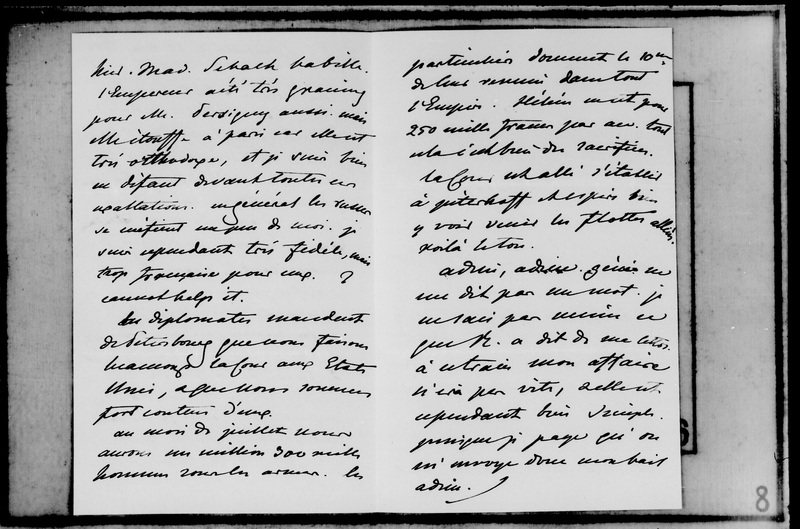 hier. Mad. Schack babille.
l'Empereur a été très gracieux
pour M. Persigny aussi. mais
elle étouffe à paris car elle est
très orthodoxe, et je suis bien
en défaut devant toutes ces
exaltations. en général les russes
se méfient un peu de moi. je
suis cependant très fidèle, mais
trop française pour eux. I
cannot help it.
les diplomates mandent
de Petersbourg que nous faisons
beaucoup la cour aux Etats
Unis, et que nous sommes
fort contens d'eux.
au mois de juillet nous
aurons un million 300 mille
hommes sous les armes. les
particuliers donnent le 10me
de leur revenu dans tout
l'Empire. Hélène met pour
250 mille francs par an. tout
cela c'est bien des sacrifices.
la Cour est allé s'établir
à péterhoff et espère bien
y voir venir les flottes alliés.
voilà le ton.
adieu, adieu. génie ne
me dit pas un mot. je
ne sais pas même ce
que R. a dit de ma lettre.
à ce train mon affaire
n'ira pas vite, elle est
cependant bien simple.
puisque je paye qu'on
m'envoye donc mon bail
adieu.
8